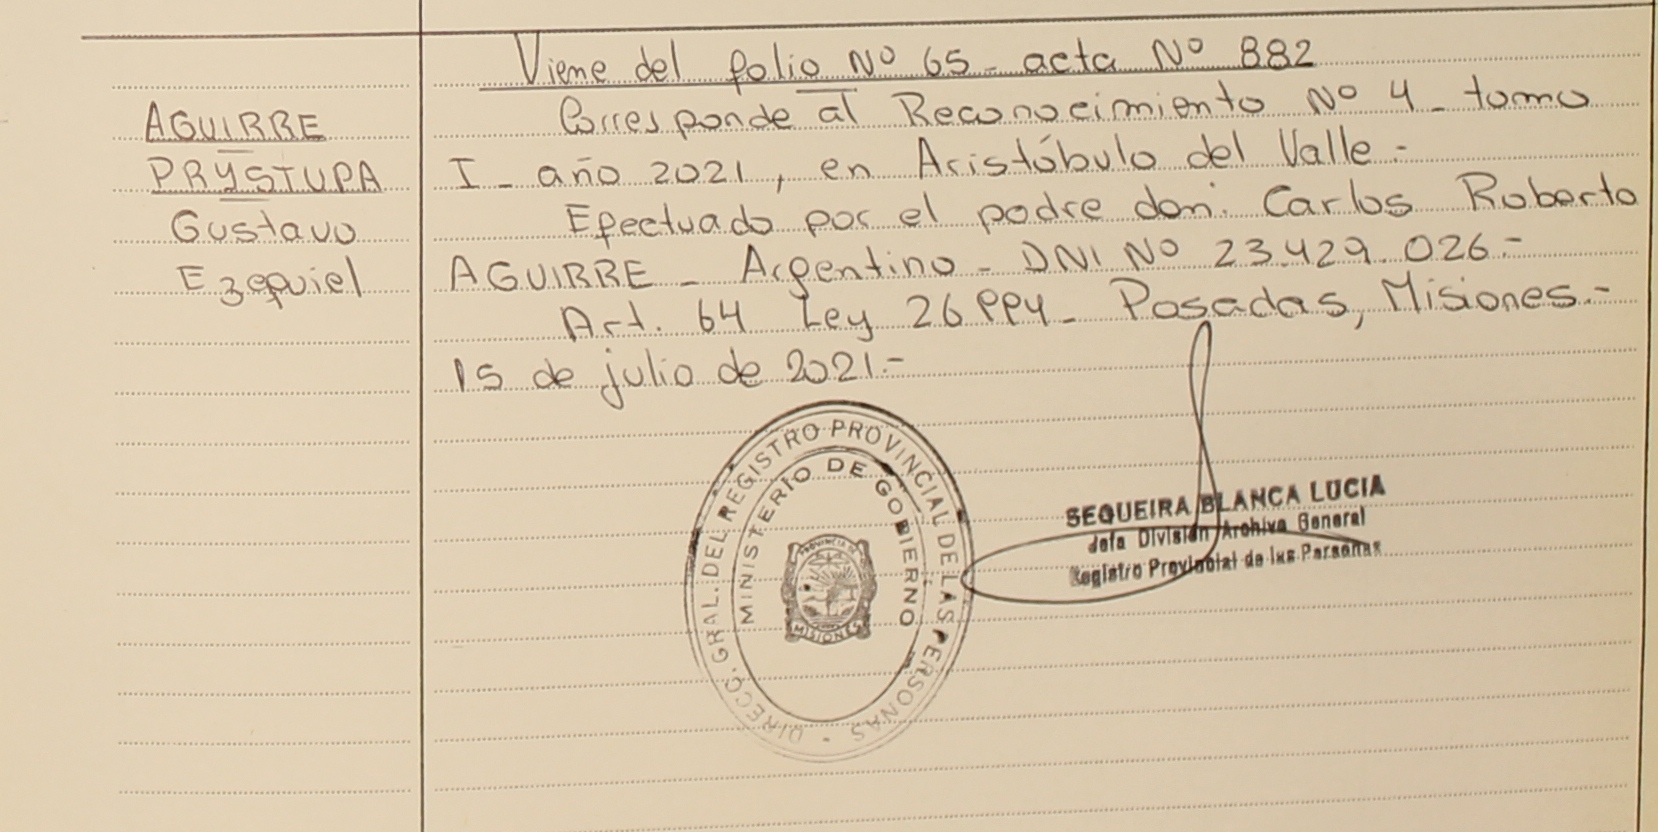 Viene del folio Nº 65 - acta Nº 882
AGUIRRE
PRYSTUPA
Gustavo
Ezequiel
Corresponde al Reconocimiento Nº 4 - tomo
I - año 2021, en Aristóbulo del Valle.-
Efectuado por el padre don: Carlos Roberto
AGUIRRE - Argentino - DNI Nº 23.429.026.-
Art. 64 Ley 26994 - Posadas, Misiones.-
15 de julio de 2021.-
DIRECC. GRAL. DEL REGISTRO PROVINCIAL DE LAS PERSONAS -
MINISTERIO DE GOBIERNO
PROVINCIA DE
MISIONES
SEQUEIRA BLANCA LUCIA
Jefa División Archivo General
Registro Provincial de las Personas